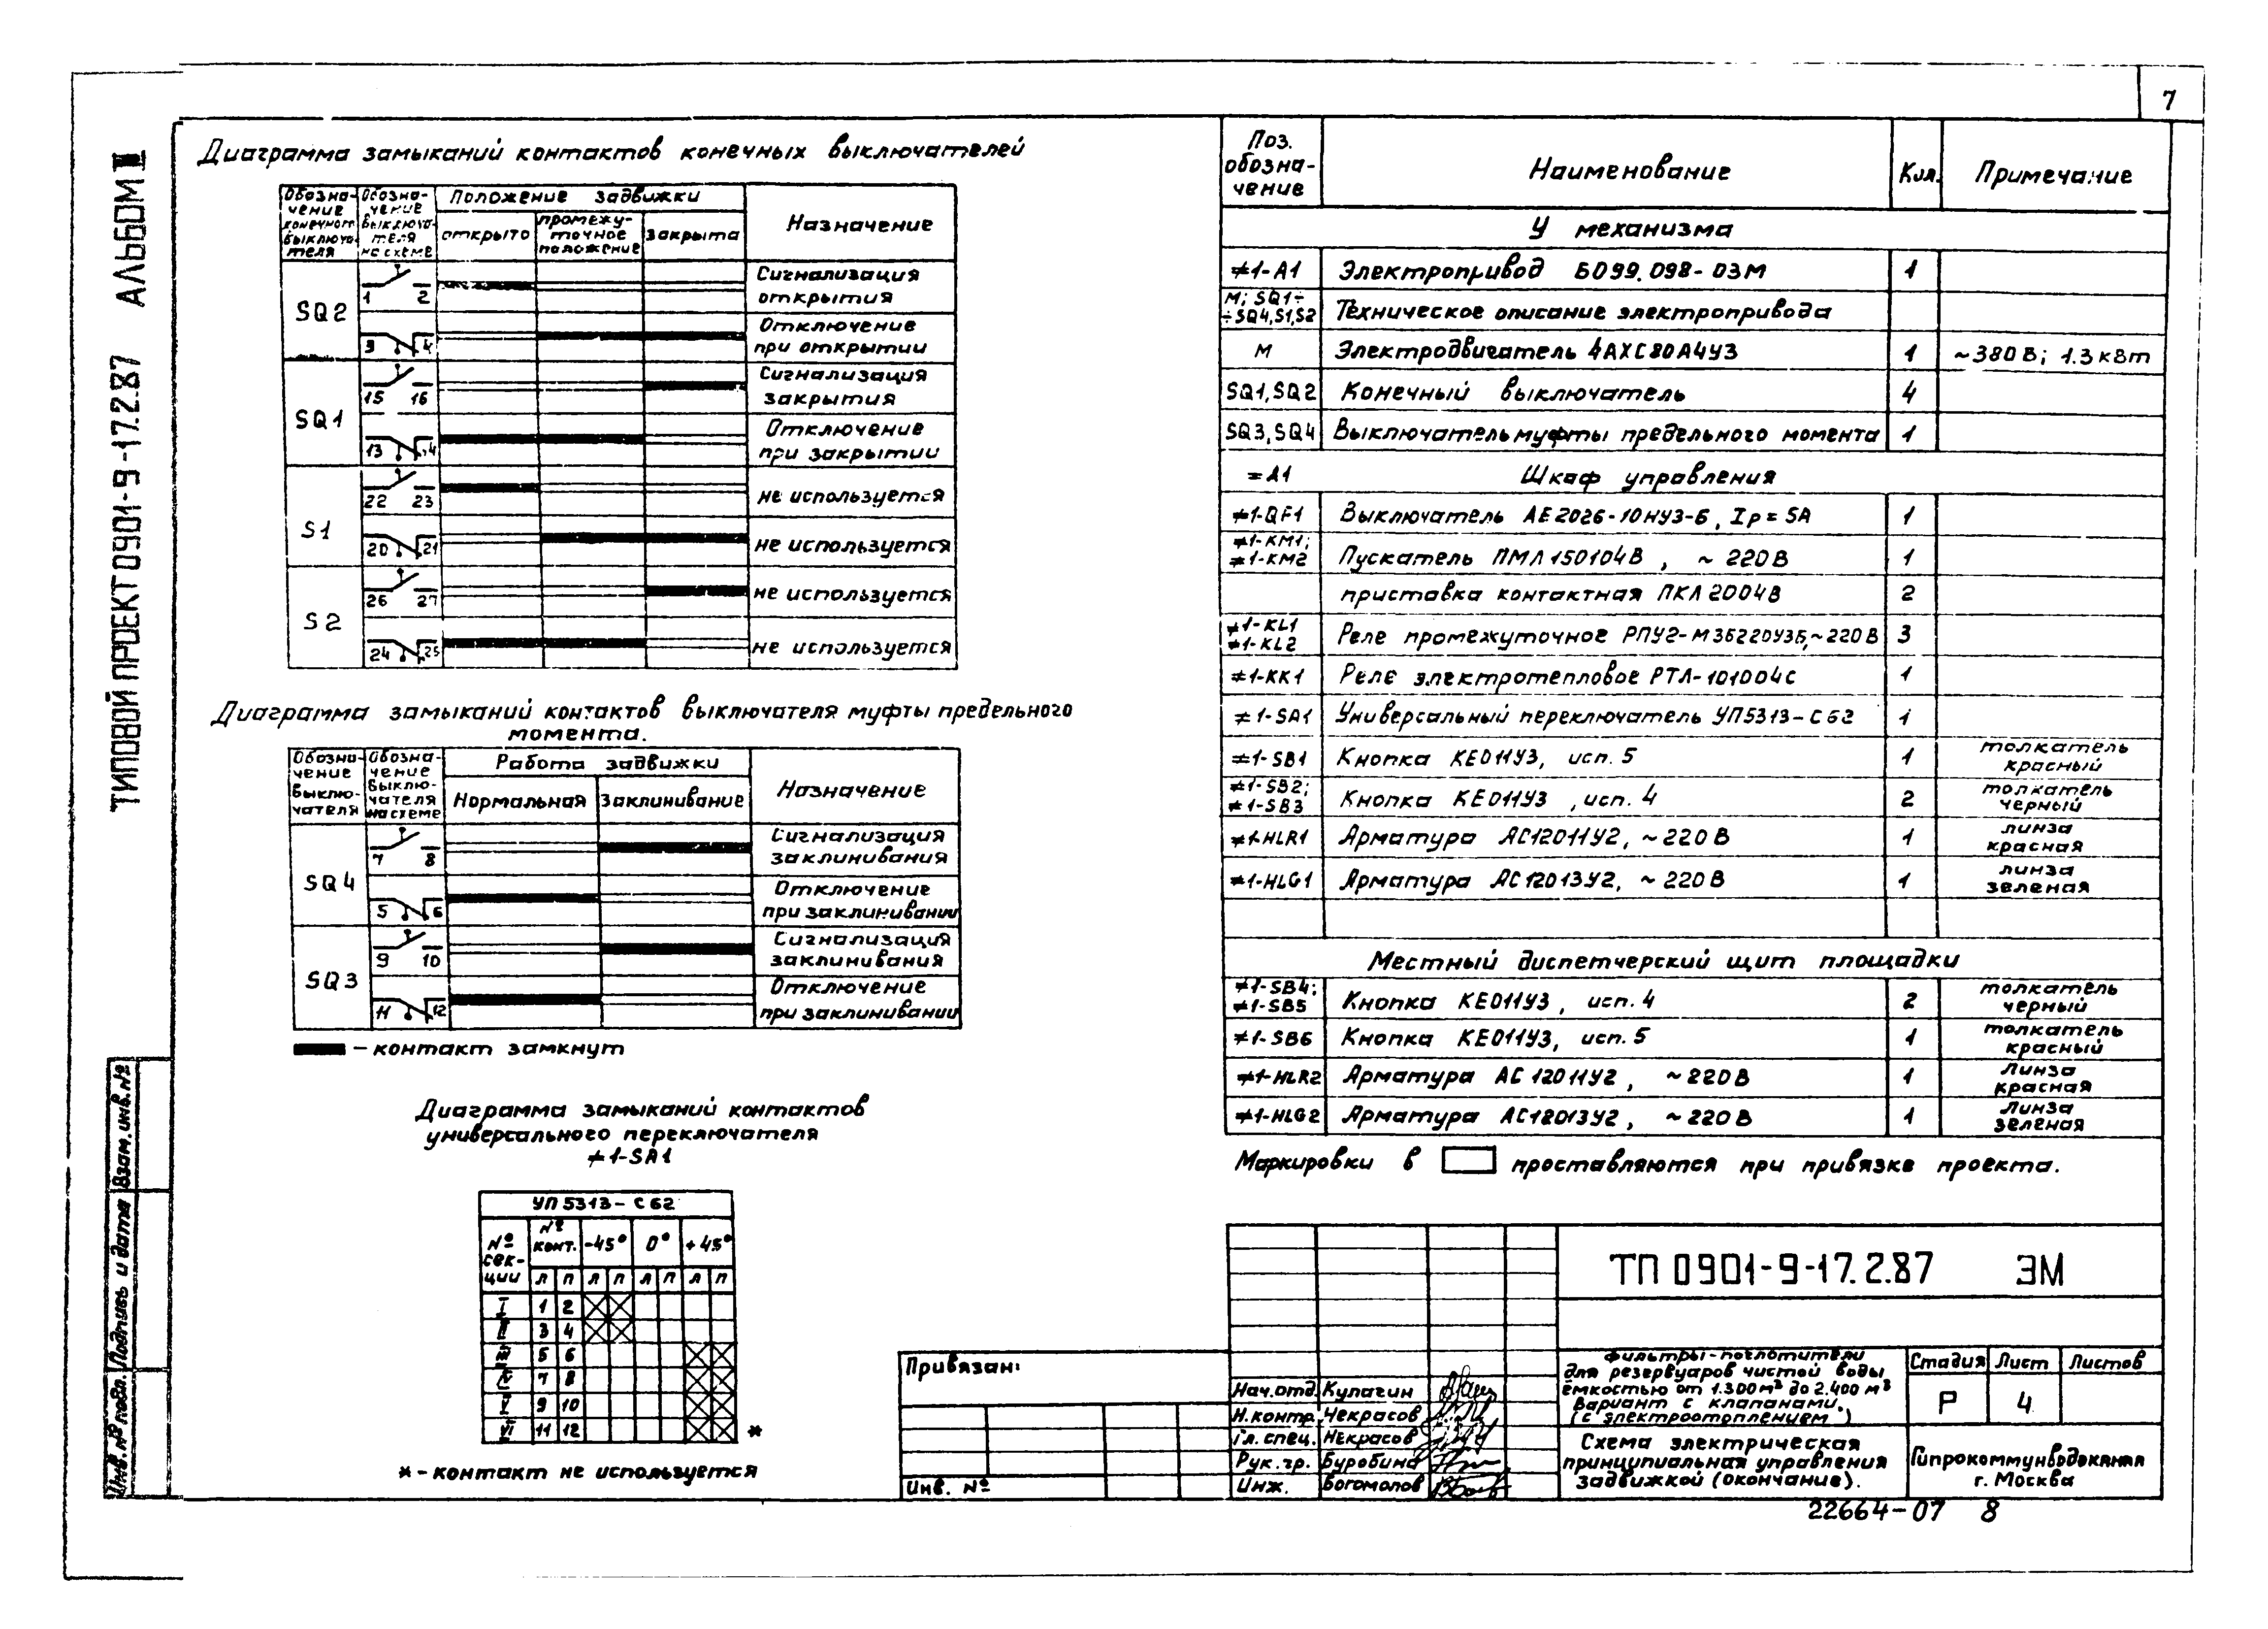 7
ТИПОВОЙ ПРОЕКТ 0901-9-17.2.87 АЛЬБОМ
Диаграмма замыканий контактов конечных выключателей
Обозна-чение конечного выключа-теля
Обозна-чение выключа-теля на схеме
Положение задвижки
открыто
промежу-точное положение
закрыта
Назначение
SQ2
1 2
Сигнализация открытия
3 4
Отключение при открытии
SQ1
15 16
Сигнализация закрытия
13
Отключение при закрытии
S1
22 23
не используется
20 21
не используется
S2
26 27
не используется
24 25
не используется
Диаграмма замыканий контактов выключателя муфты предельного
момента.
Обозна-чение выклю-чателя
Обозна-чение выклю-чателя на схеме
Работа задвижки
Нормальная
Заклинивание
Назначение
SQ4
7 8
Сигнализация заклинивания
5 6
Отключение при заклинивании
SQ3
9 10
Сигнализация заклинивания
11 12
Отключение при заклинивании
– контакт замкнут
Диаграмма замыканий контактов
универсального переключателя
≠1-SA1
УП 5313 – С 62
№ сек-ции
№ конт.
-45° 0° +45°
Л П Л П Л П Л П
I 1 2
II 3 4
III 5 6
IV 7 8
V 9 10
VI 11 12
*
* - контакт не используется
Поз. обозна-чение
Наименование
Кол.
Примечание
У механизма
≠1-А1 Электропривод Б099.098-03М 1
М; SQ1÷÷SQ4,S1,S2 Техническое описание электропривода
М Электродвигатель 4АХС80А4У3 1 ~380 В; 1.3 кВт
SQ1, SQ2 Конечный выключатель 4
SQ3, SQ4 Выключатель муфты предельного момента 1
=А1 Шкаф управления
≠1-QF1 Выключатель АЕ2026-10НУ3-Б, Iр = 5А 1
≠1-KM1; ≠1-KM2 Пускатель ПМЛ150104В, ~ 220 В 1
приставка контактная ПКЛ2004В 2
≠1-KL1 ≠1-KL2 Реле промежуточное РПУ2-М36220У3Б, ~220 В 3
≠1-KK1 Реле электротепловое РТЛ-101004С 1
≠1-SA1 Универсальный переключатель УП5313-С62 1
≠1-SB1 Кнопка КЕ011У3, исп. 5 1 толкатель красный
≠1-SB2; ≠1-SB3 Кнопка КЕ011У3, исп. 4 2 толкатель черный
≠1-HLR1 Арматура АС12011У2, ~220 В 1 линза красная
≠1-HLG1 Арматура АС12013У2, ~220 В 1 линза зеленая
Местный диспетчерский щит площадки
≠1-SB4; ≠1-SB5 Кнопка КЕ011У3, исп. 4 2 толкатель черный
≠1-SB6 Кнопка КЕ011У3, исп. 5 1 толкатель красный
≠1-HLR2 Арматура АС 12011У2, ~ 220 В 1 Линза красная
≠1-HLG2 Арматура АС12013У2, ~ 220 В 1 Линза зеленая
Маркировки в проставляются при привязке проекта.
Привязан:
Инв. №
Нач.отд. Кулагин
Н.контр. Некрасов
Гл. спец. Некрасов
Рук. гр. Буробина
Инж. Богомолов
ТП 0901-9-17.2.87 ЭМ
Фильтры-поглотители
для резервуаров чистой воды
ёмкостью от 1.300 м³ до 2.400 м³
Вариант с клапанами.
(с электроотоплением)
Стадия Лист Листов
Р 4
Схема электрическая
принципиальная управления
задвижкой (окончание).
Гипрокоммунводоканал
г. Москва
22664-07 8
Инв.№ подл. Подпись и дата Взам.инв.№